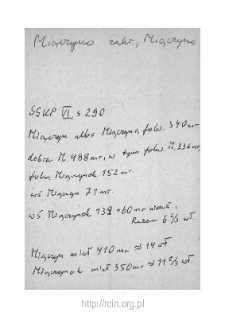 Miączyno zakr., Miączyno
SGKP VI, s. 290
Miączyn albo Miączyno, folw. 340 mr.
dobra M. 488 mr., w tym folw M. 336 mr,
folw. Miączynek 152 mr.
wś Miączyn 71 mr.
wś Miączynek 139 + 60 mr
Razem 6 2/3 wł.
Miączyn miał 410 mr. ≈ 14 wł
Miączynek miał 350 mr ≈ 11 2/3 wł
http://rcin.org.pl